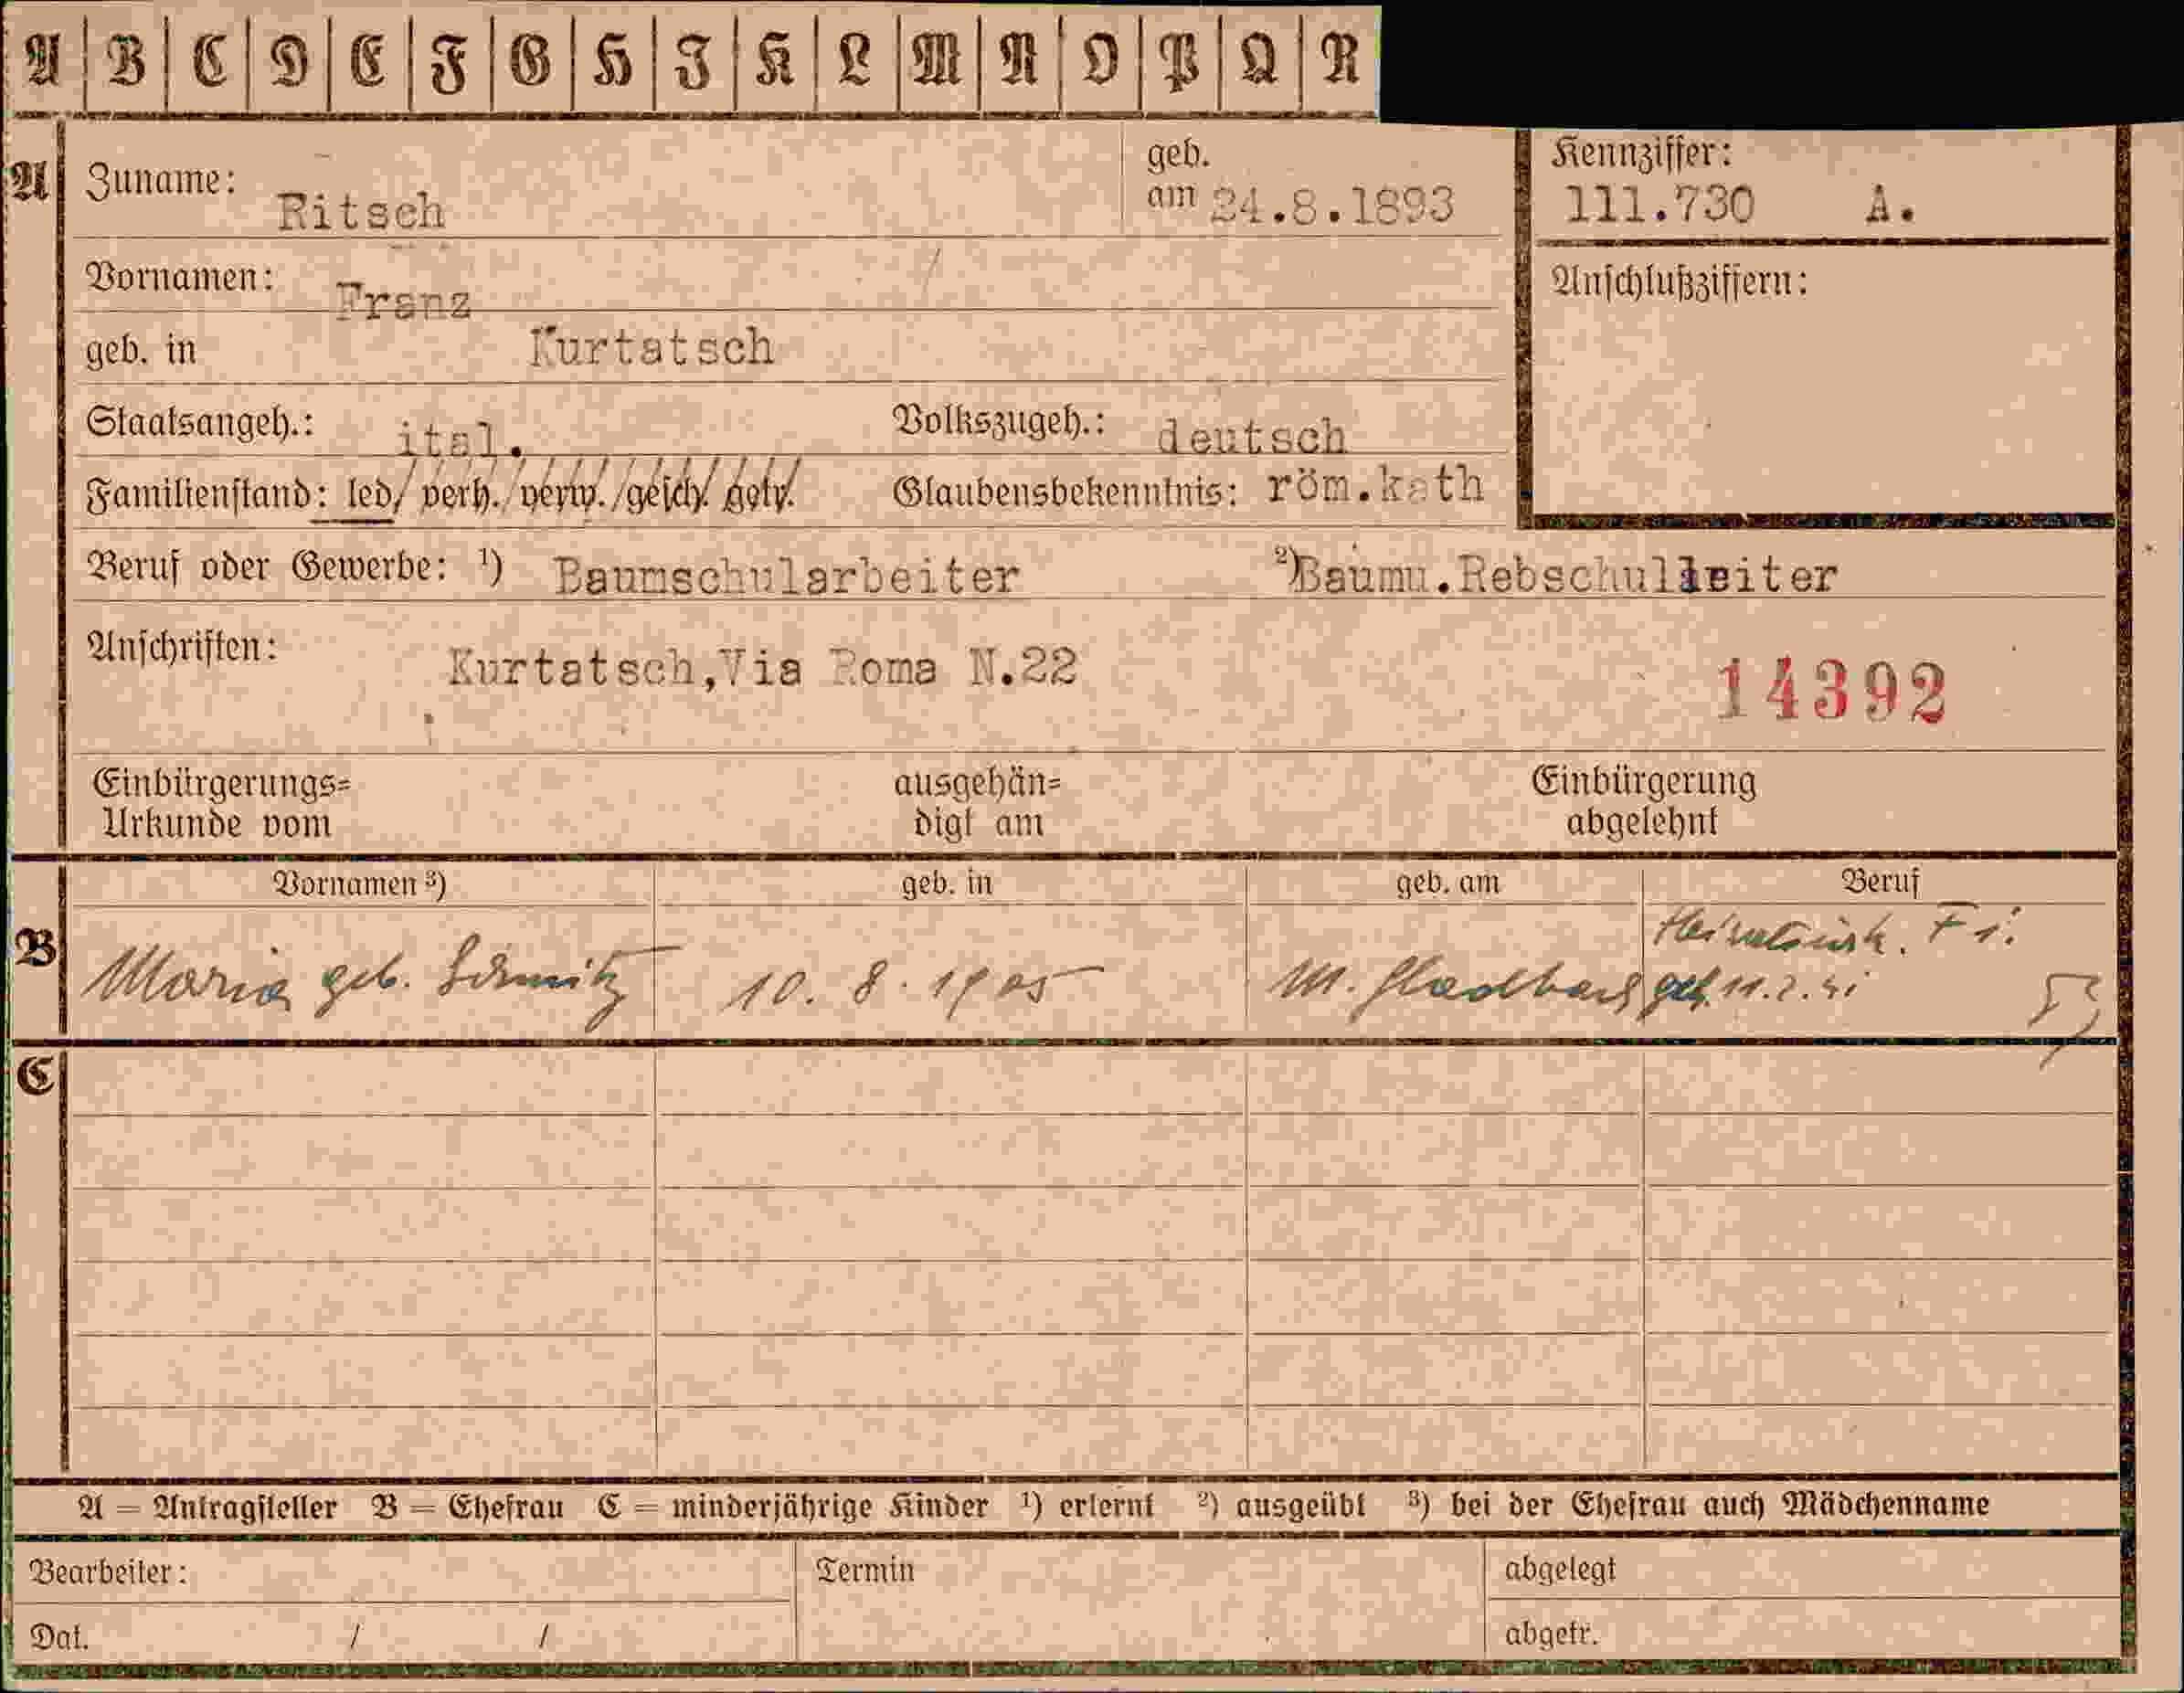 A B C D E F G H I K L M N O P Q R
A Zuname: Ritsch geb. am 24.8.1893 Kennziffer: 111.730 A.
Vornamen: Franz Anschlußziffern:
geb. in Kurtatsch
Staatsangeh.: ital. Volkszugeh.: deutsch
Familienstand: led/ verh./ verw./gesch/ getr. Glaubensbekenntnis: röm.kath
Beruf oder Gewerbe: 1) Baumschularbeiter 2)Baumu.Rebschulleiter
Anschriften: Kurtatsch,Via Roma N.22
14392
Einbürgerungs= ausgehän= Einbürgerung
Urkunde vom digt am abgelehnt
Vornamen 3) geb. in geb. am Beruf
Heiratsurk. Fi.
B Maria geb. Schmitz 10. 8. 1905 M. Gladbach 11.2.41
C
A = Antragsteller B = Ehefrau C = minderjährige Kinder 1) erlernt 2) ausgeübt 3) bei der Ehefrau auch Mädchenname
Bearbeiter: Termin abgelegt
Dat. / / abgetr.